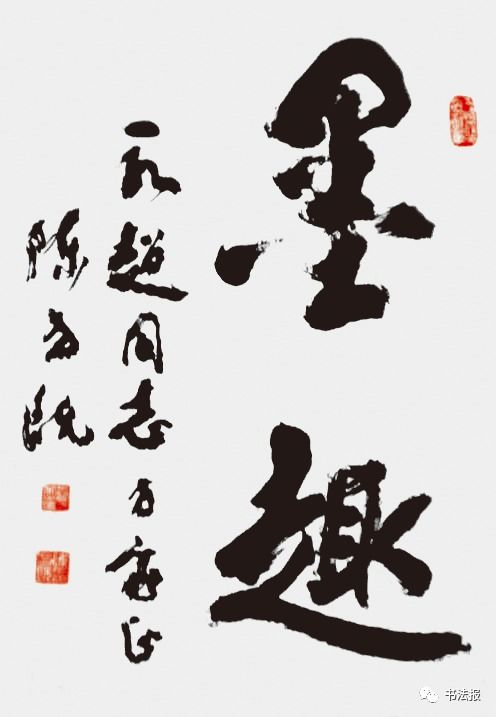 墨趣
永超同志方家正
陈方既
书法报